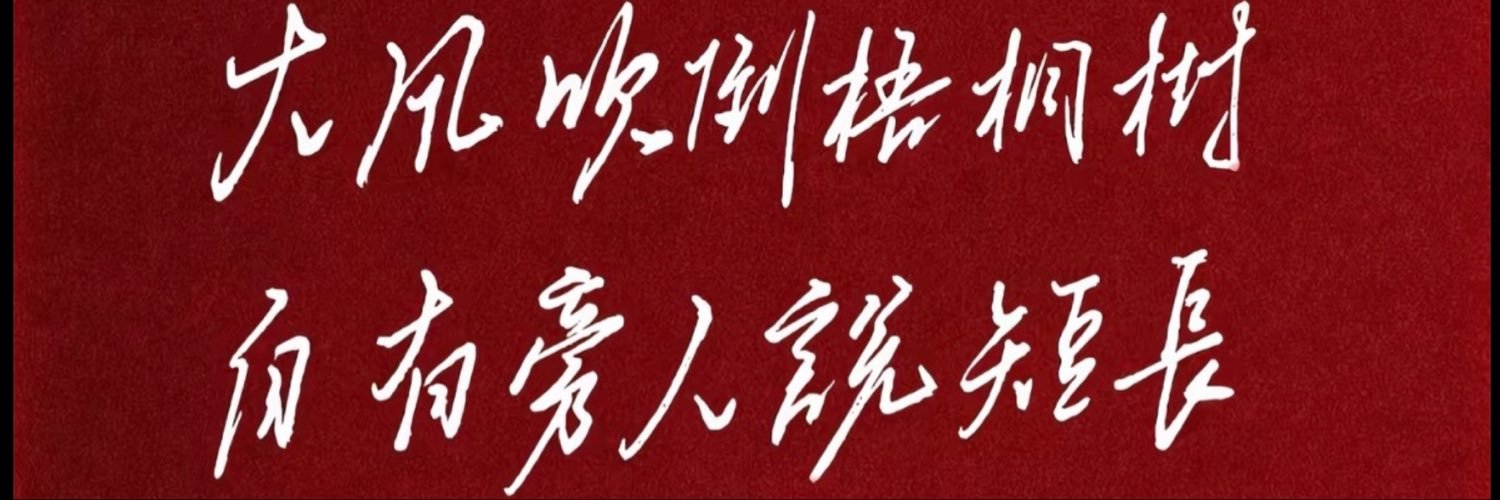 大风吹倒梧桐树
自有旁人説短長